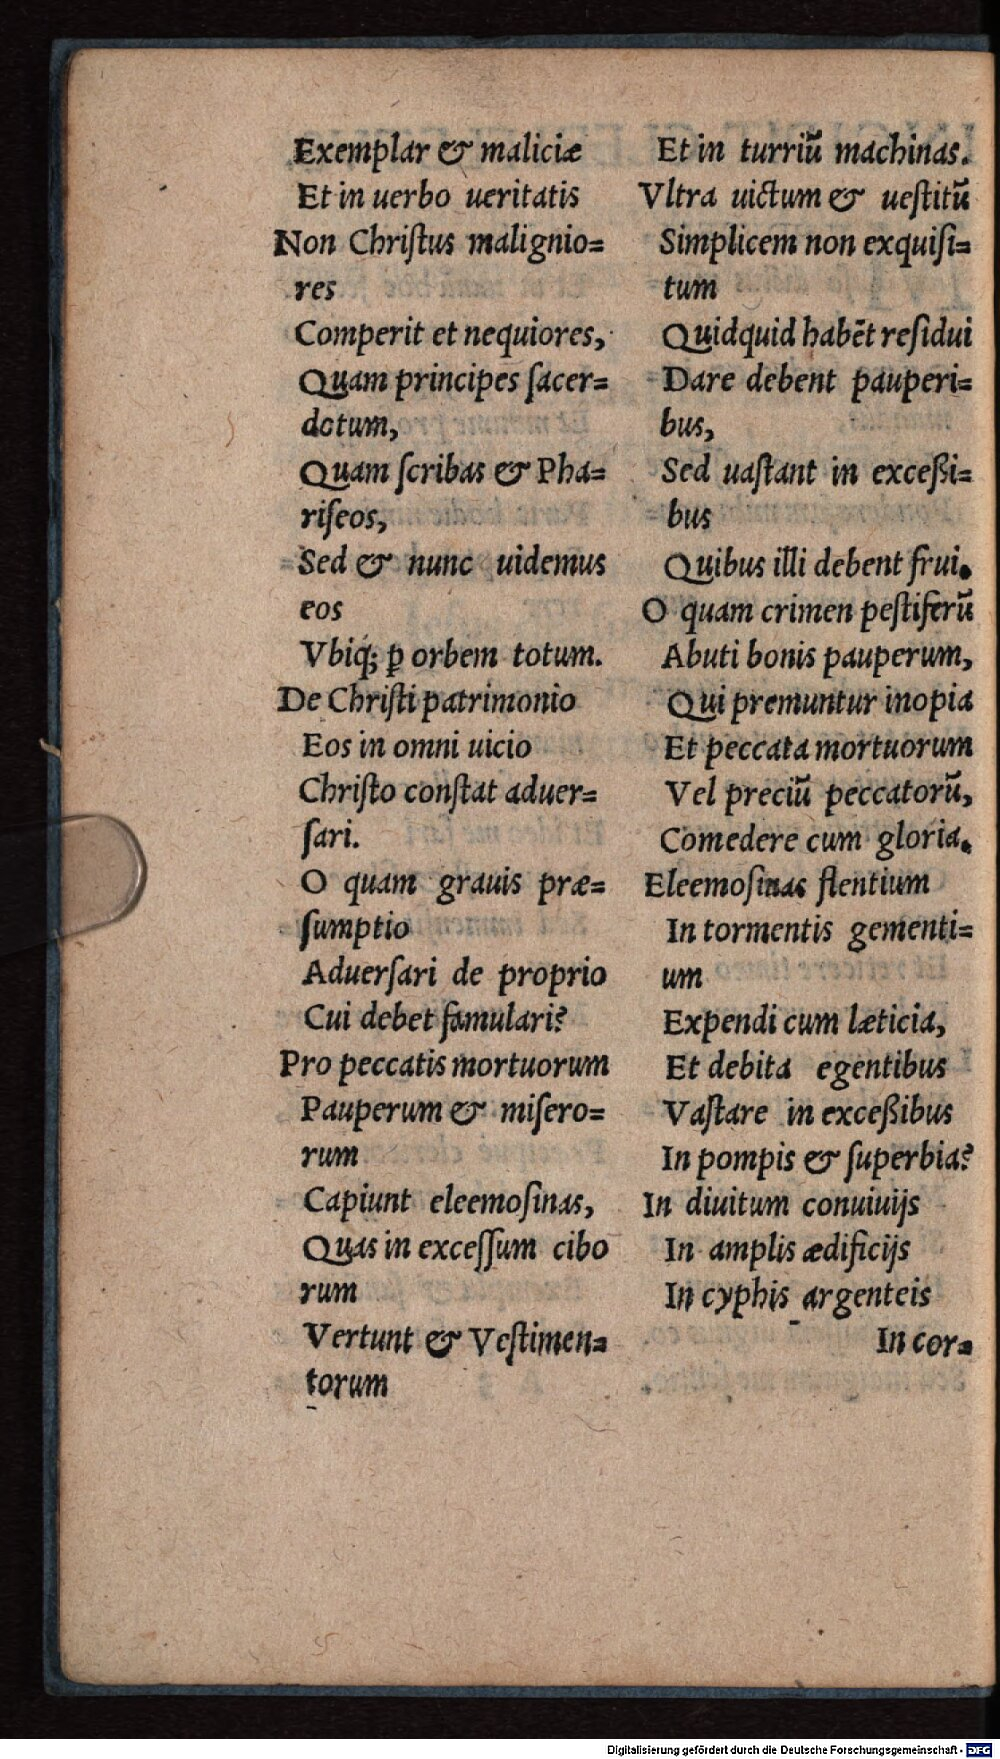 Exemplar & maliciæ
Et in uerbo ueritatis
Non Chriſtus malignio=
res
Comperit et nequiores,
Quam principes ſacer=
dotum,
Quam ſcribas & Pha=
riſeos,
Sed & nunc uidemus
eos
Vbiq́; ꝑ orbem totum.
De Chriſti patrimonio
Eos in omni uicio
Chriſto conſtat aduer=
ſari.
O quam grauis præ=
ſumptio
Aduerſari de proprio
Cui debet famulari?
Pro peccatis mortuorum
Pauperum & miſero=
rum
Capiunt eleemoſinas,
Quas in exceſſum cibo
rum
Vertunt & Veſtimen=
torum
Et in turriũ machinas.
Vltra uictum & ueſtitũ
Simplicem non exquiſi=
tum
Quidquid habẽt reſidui
Dare debent pauperi=
bus,
Sed uaſtant in exceßi=
bus
Quibus illi debent frui.
O quam crimen peſtiferũ
Abuti bonis pauperum,
Qui premuntur inopia
Et peccata mortuorum
Vel preciũ peccatorũ,
Comedere cum gloria.
Eleemoſinas flentium
In tormentis gementi=
um
Expendi cum læticia,
Et debita egentibus
Vaſtare in exceßibus
In pompis & ſuperbia?
In diuitum conuiuijs
In amplis ædificijs
In cyphis argenteis
In cor=
Digitalisierung gefördert durch die Deutsche Forschungsgemeinschaft - DFG